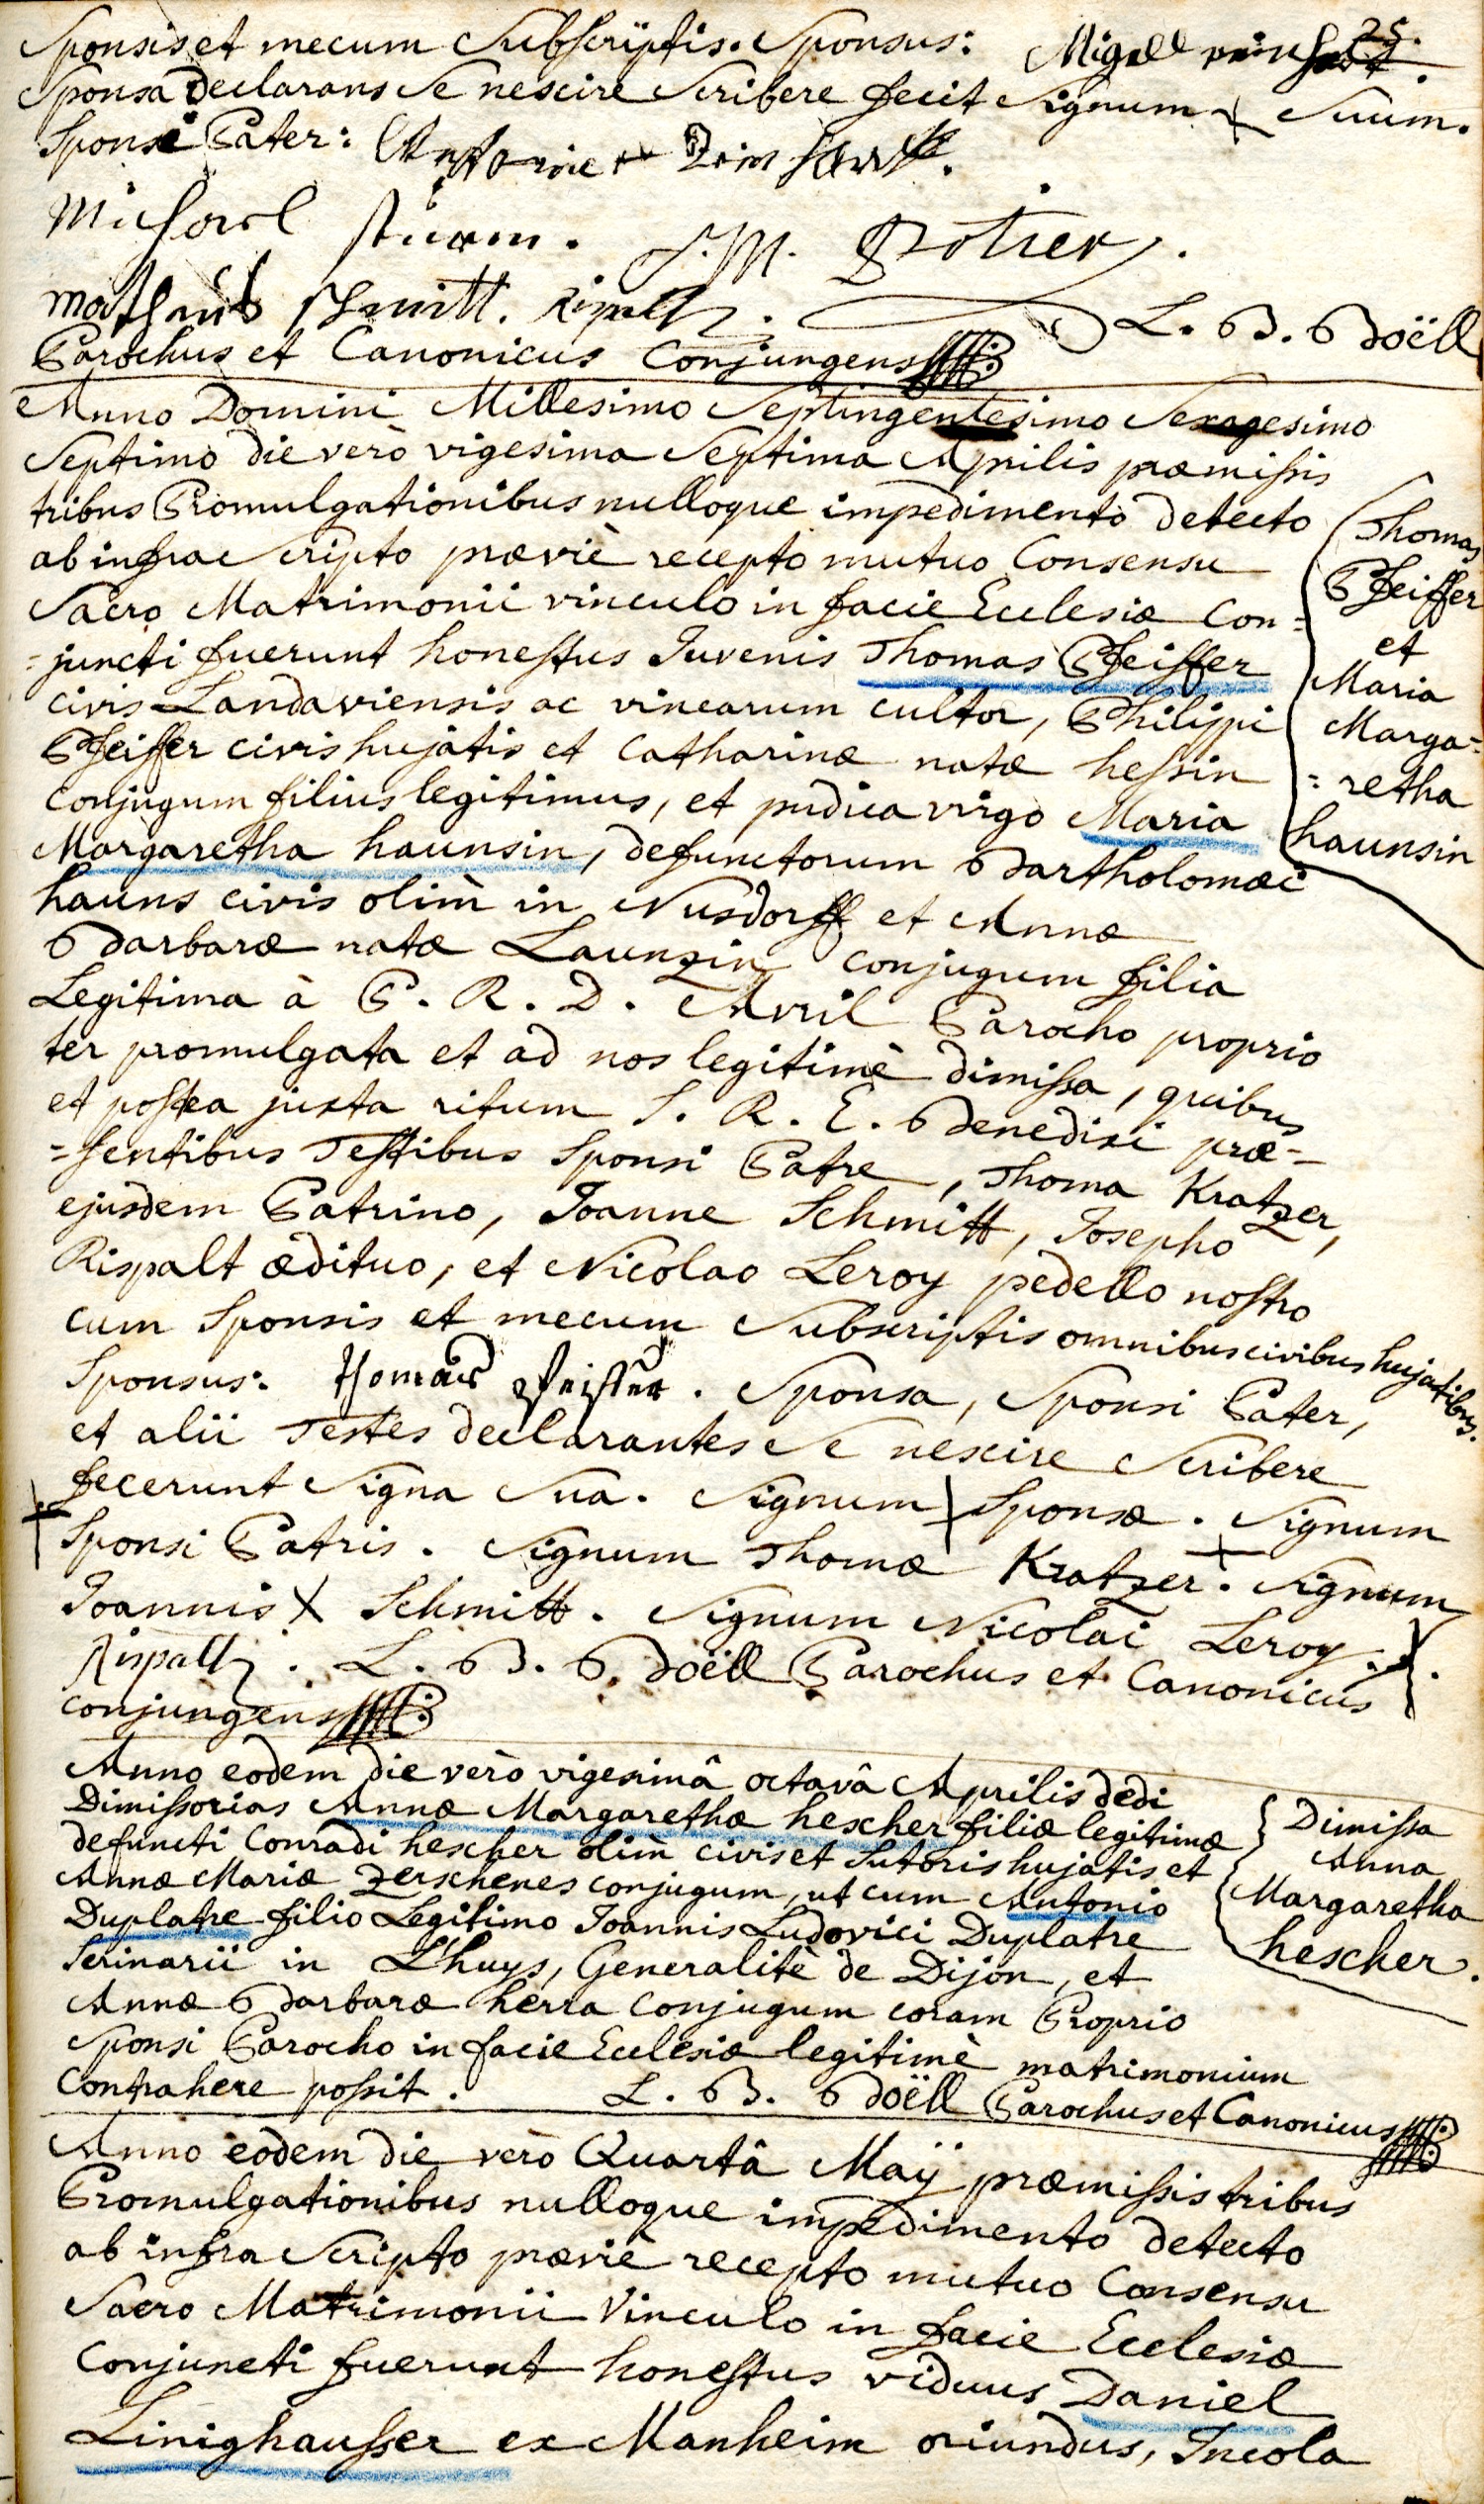 25.
Sponsis et mecum Subscriptis. Sponsus: Migell
Sponsa declarans Se nescire Scribere fecit Signum + Suum.
Sponsi Pater:
Michael Sturm. J. M. Potier.
Matheus Schmitt. Rispalt. L. B. Boëll
Parochus et Canonicus Conjungens
Anno Domini Millesimo Septingentesimo Sexagesimo
Septimo die verò vigesima Septima Aprilis præmissis
tribus Promulgationibus nulloque impedimento detecto
ab infra Scripto præviè recepto mutuo Consensu
Sacro Matrimonii vinculo in facie Ecclesiæ Con=
=juncti fuerunt honestus Juvenis Thomas Pfeiffer
civis Landaviensis ac vinearum cultor, Philippi
Pfeiffer civis hujatis et Catharinæ natæ hessin
Conjugum filius legitimus, et pudica virgo Maria
Margaretha haunsin, defunctorum Bartholomæi
hauns civis olim in Nusdorff et Annæ
Barbaræ natæ Launzin conjugum filia
Legitima à P. R. D. Avril Parocho proprio
ter promulgata et ad nos legitimè dimissa, quibus
et postea juxta ritum S. R. E. Benedixi præ=
=sentibus Testibus Sponsi Patre, Thoma Kratzer,
ejusdem Patrino, Joanne Schmitt, Josepho
Rispalt ædituo, et Nicolao Leroy pedello nostro
cum Sponsis et mecum Subscriptis omnibus civibus hujatibus.
Sponsus: Thomas Pfeiffer. Sponsa, Sponsi Pater,
et alii Testes declarantes Se nescire Scribere
fecerunt Signa Sua. Signum + Sponsæ. Signum
+ Sponsi Patris. Signum Thomæ + Kratzer. Signum
Joannis + Schmitt. Signum Nicolai Leroy +.
Rispalt. L. B. Boëll Parochus et Canonicus
conjungens
Thomas
Pfeiffer
et
Maria
Marga=
=retha
haunsin
Anno eodem die verò vigesimâ octavâ Aprilis dedi
Dimissorias Annæ Margarethæ hescher filiæ legitimæ
defuncti Conradi hescher olim civis et Sutoris hujatis et
Annæ Mariæ Zerschenes conjugum, ut cum Antonio
Duplatre filio Legitimo Joannis Ludovici Duplatre
Scrinarii in L'huys, Generalitè de Dijon, et
Annæ Barbaræ herra Conjugum coram Proprio
Sponsi Parocho in facie Ecclesiæ legitimè matrimonium
Contrahere possit. L. B. Boëll Parochus et Canonicus
Dimissa
Anna
Margaretha
hescher.
Anno eodem die verò Quartâ Maÿ præmissis tribus
Promulgationibus nulloque impedimento detecto
ab infra Scripto præviè recepto mutuo Consensu
Sacro Matrimonii Vinculo in facie Ecclesiæ
Conjuncti fuerunt honestus viduus Daniel
Linighausser ex Manheim oriundus, Incola